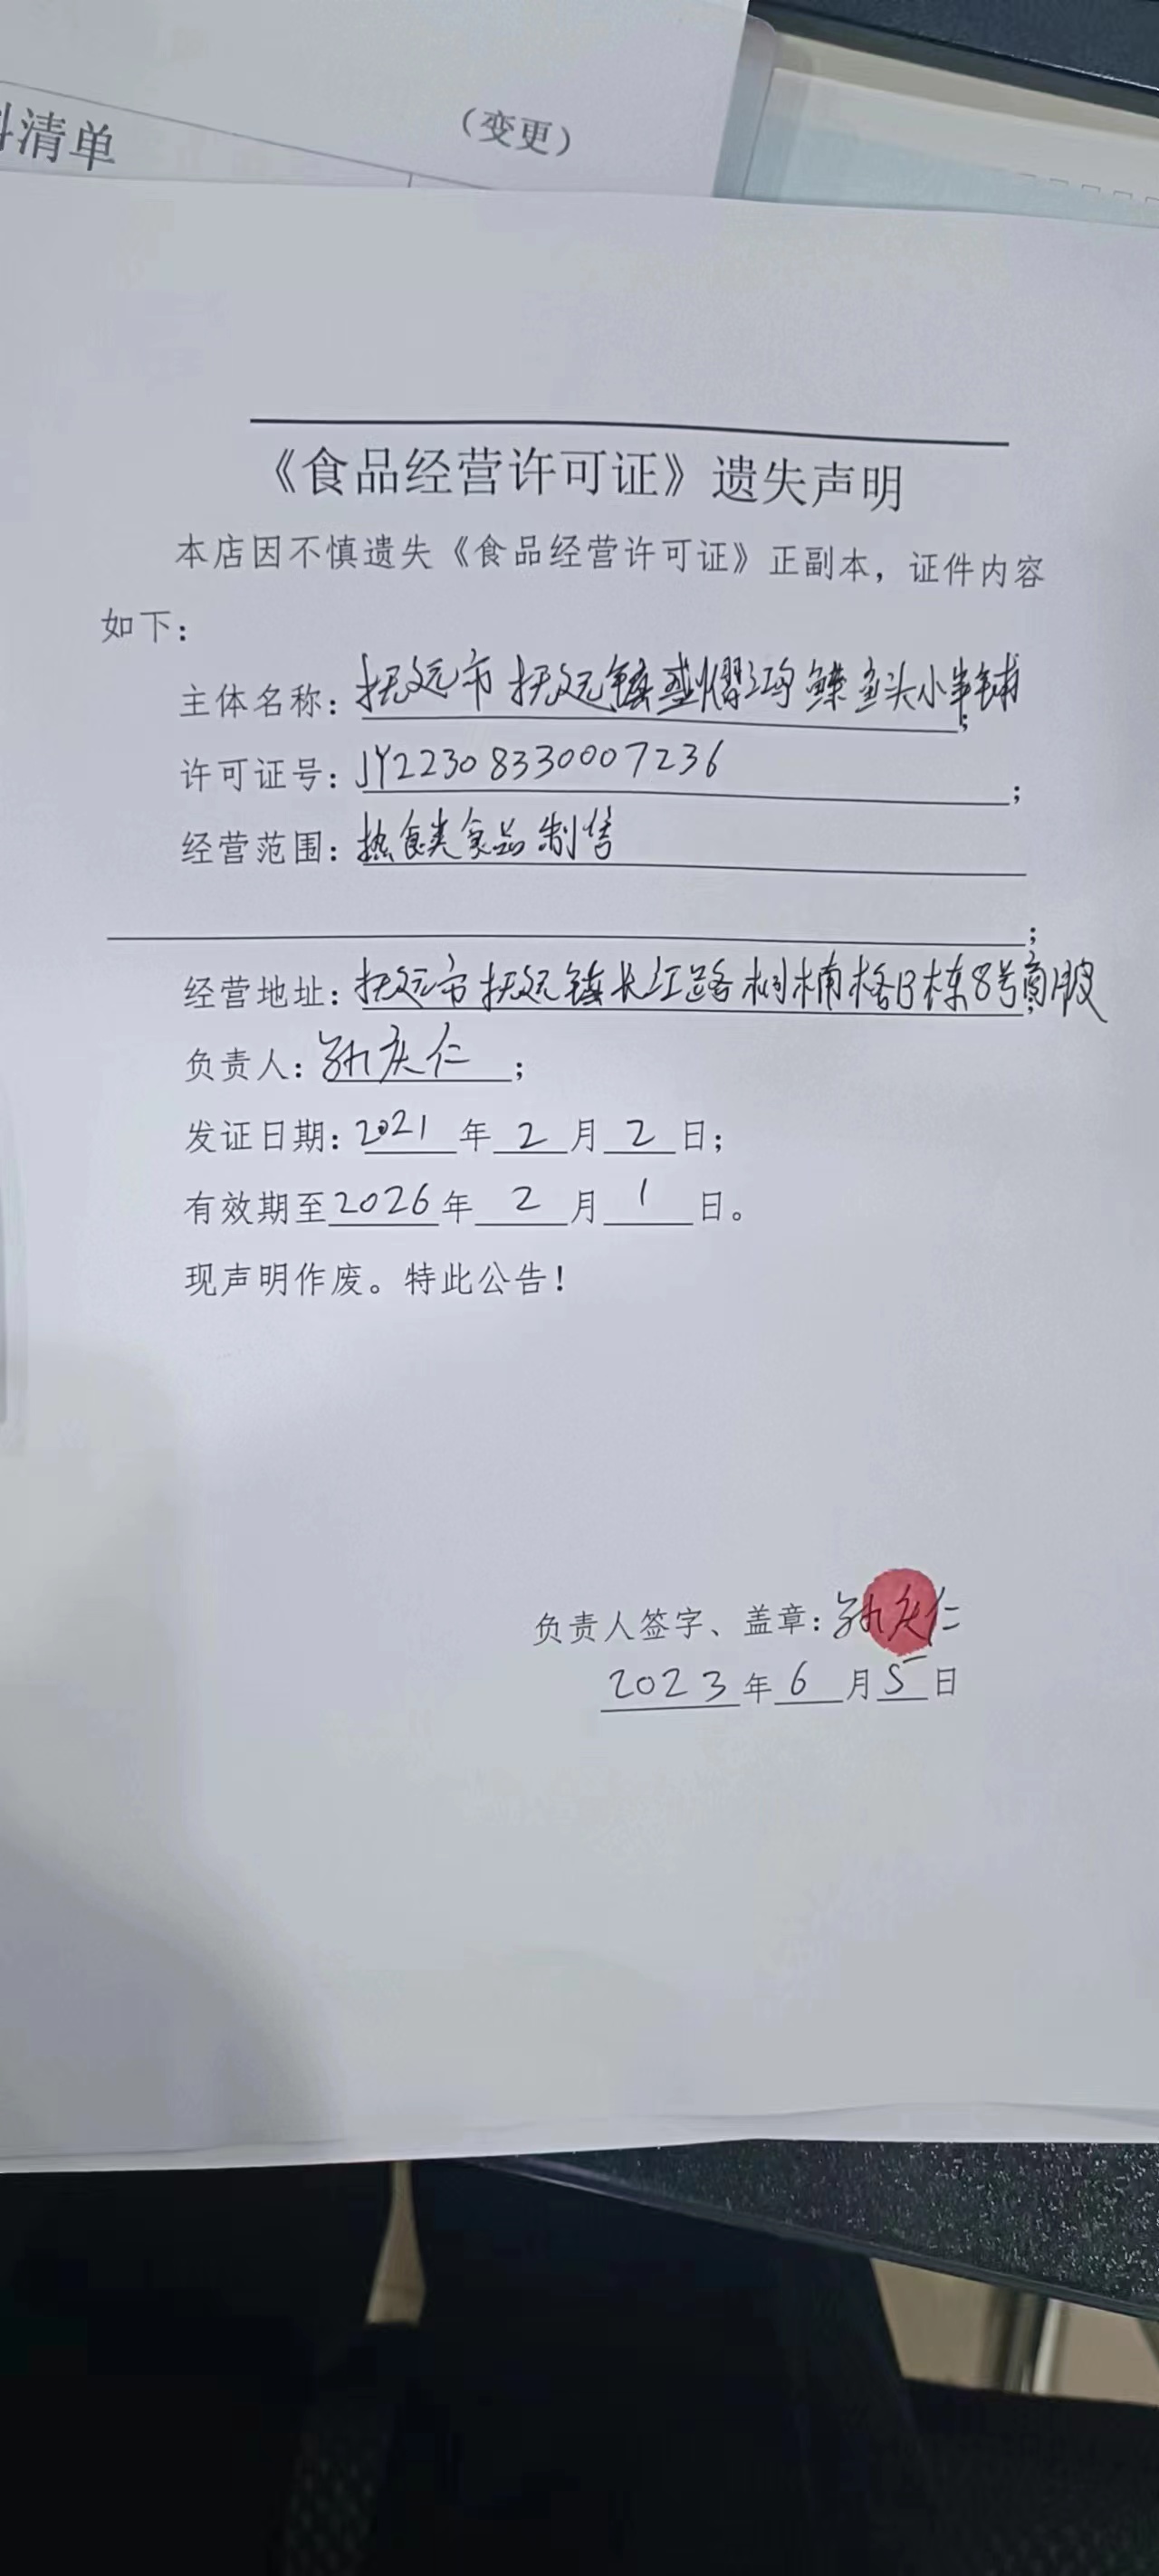 料清单
（变更）
《食品经营许可证》遗失声明
本店因不慎遗失《食品经营许可证》正副本，证件内容
如下：
主体名称：抚远市抚远镇盛熠鸿鲽鱼头小串铺；
许可证号：JY22308330007236；
经营范围：热食类食品制售
；
经营地址：抚远市抚远镇长江路桐楠格B栋8号商服；
负责人：孙庆仁；
发证日期：2021年2月2日；
有效期至2026年2月1日。
现声明作废。特此公告！
负责人签字、盖章：孙庆仁
2023年6月5日